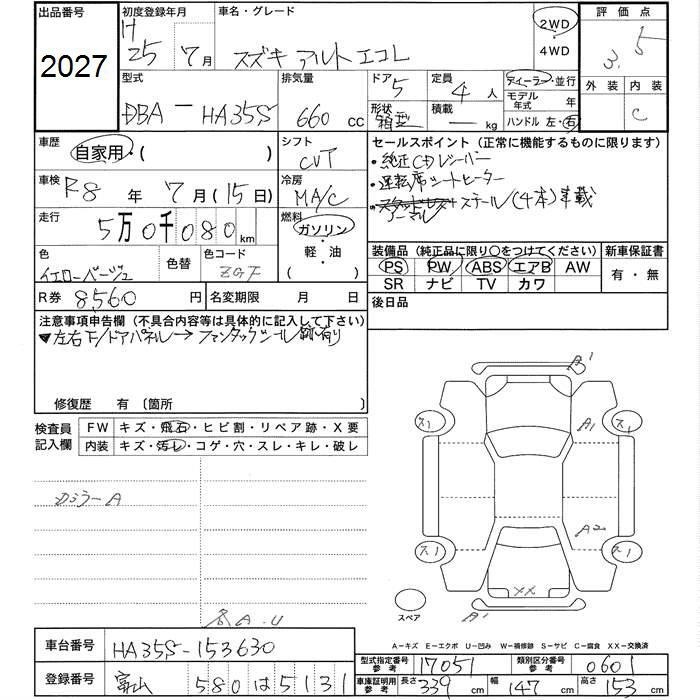 出品番号 初度登録年月 車名・グレード 2WD 評価点
2027 H25 7月 スズキ アルト エコL 4WD 3.5
型式 排気量 ドア 5 定員 4人 ディーラー・並行 外装 内装
DBA-HA35S 660 cc 形状 箱型 積載 — kg モデル年式 年 C
ハンドル 左・右
車歴 自家用・( ) シフト CVT セールスポイント (正常に機能するものに限ります)
・純正CDレシーバー
車検 R8年 7月(15日) 冷房 MA/C ・運転席シートヒーター
・ノーマル スチール(4本)車載
走行 5万0千080km 燃料 ガソリン・軽・油 ( )
色 イエローベージュ 色替 色コード ZGF
装備品 (純正品に限り○をつけてください) 新車保証書
PS PW ABS エアB AW 有・無
SR ナビ TV カワ
R券 8560円 名変期限 月 日 後日品
注意事項申告欄 (不具合内容等は具体的に記入して下さい)
▼左右F/ドアパネル→ブラックシール跡有り
修復歴 有 〔箇所
検査員 記入欄 FW キズ・飛石・ヒビ割・リペア跡・X要
内装 キズ・汚レ・コゲ・穴・スレ・キレ・破レ
A1
ス1 A1 ス1
A2
ス1 ス1
XX
スペア A1
A.U
A-キズ E-エクボ U-凹み W-補修跡 S-サビ C-腐食 XX-交換済
車台番号 HA35S-153630
型式指定番号 参考 17051 類別区分番号 参考 0601
登録番号 富山 580 は 5131
車庫証明用 参考 長さ 339 cm 幅 147 cm 高さ 153 cm